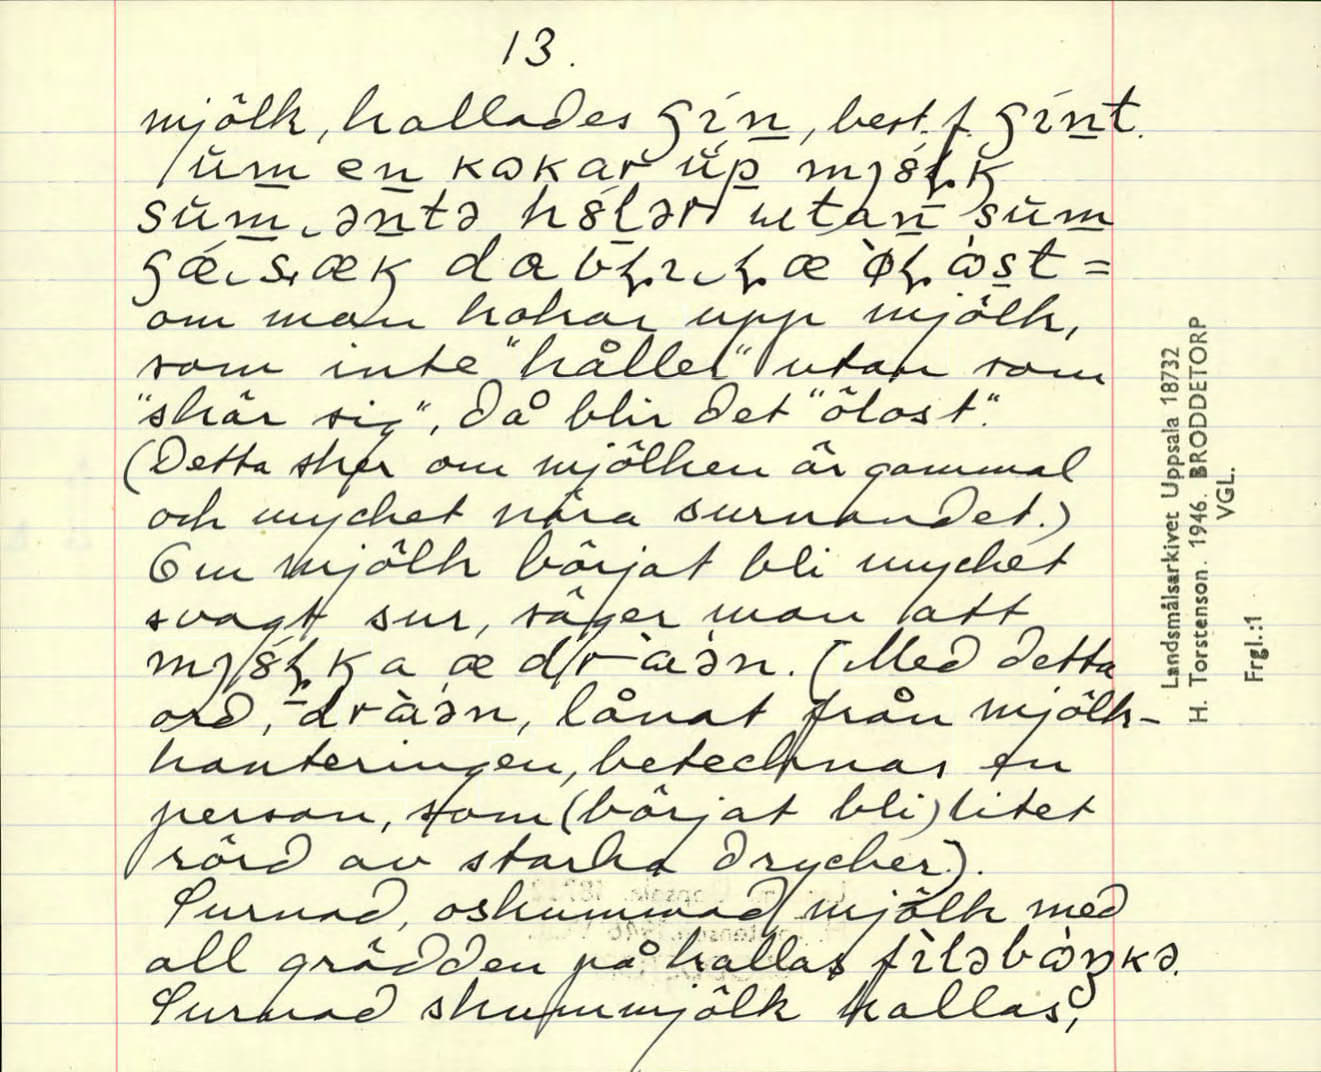 13.
mjölk, kallades gín, best. f. gínt.
ŭm en kɷkar ŭp
sŭm əntə utan sŭm
om man kokar upp mjölk,
som inte "håller" utan som
"skär sig", då blir det "ölost".
(Detta sker om mjölken är gammal
och mycket nära surnandet.)
Om mjölk börjat bli mycket
svagt sur, säger man att
(Med detta
ord, lånat från mjölk-
hanteringen, betecknas en
person, som (börjat bli) litet
rörd av starka drycker.).
Surnad, oskummad mjölk med
all grädden på kallas fìləbɷ̀ŋkə.
Surnad skummjölk kallas,
Landsmålsarkivet Uppsala 18732
H. Torstenson. 1946. BRODDETORP
VGL.
Frgl.:1